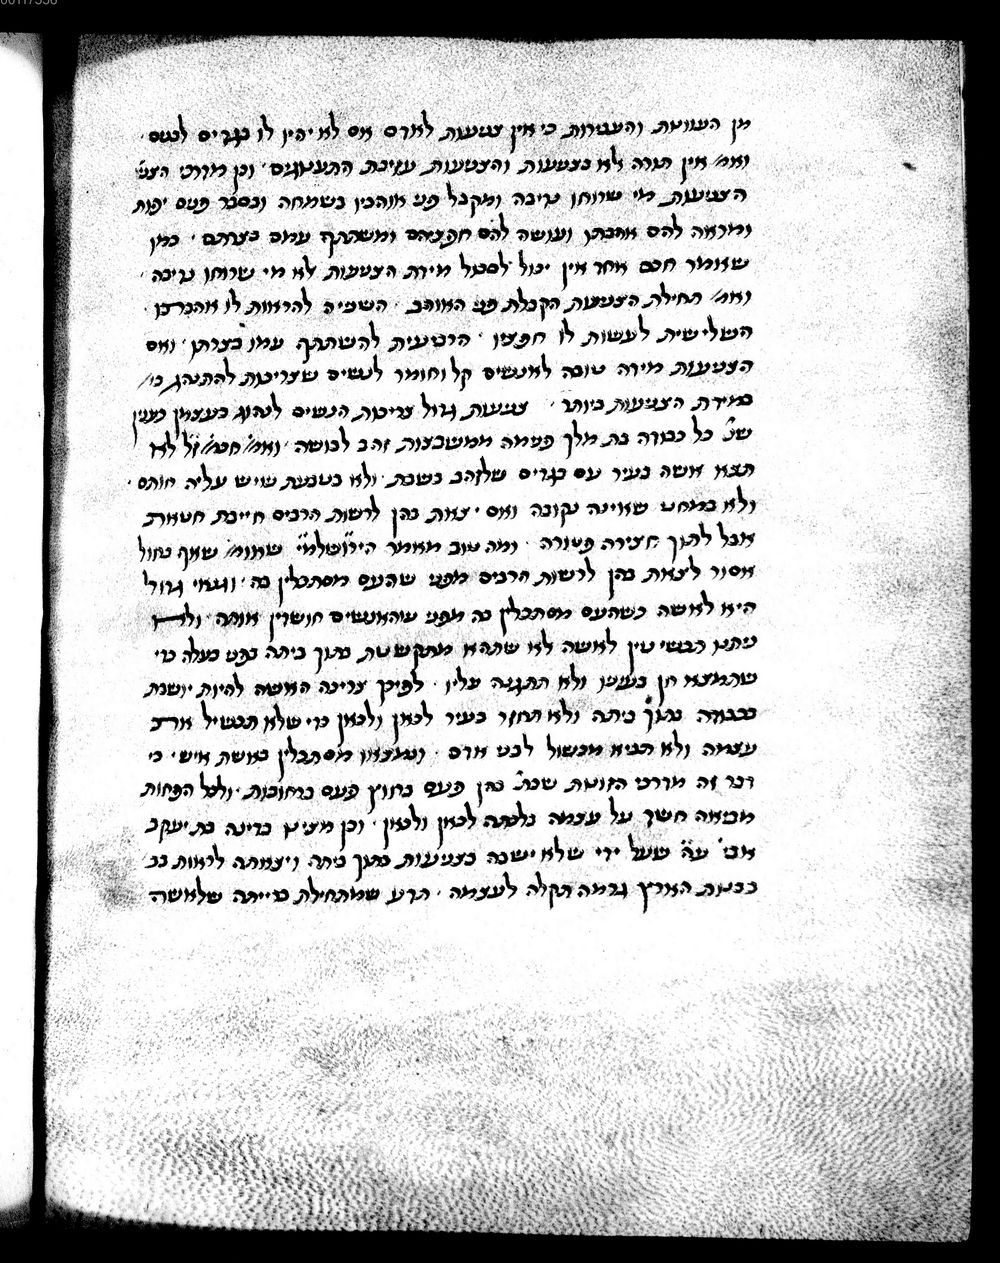 מן העונות והעבירות כי אין צניעות לאדם אם לא יהיו לו בגדים לבוש
ואמ' אין תורה לא בצניעות והצניעות עזיבת התענוגים וכן מדרכי הצני'
הצניעות מי שרוחו נדיבה ומקבל פני אוהביו בשמחה ובסבר פנים יפות
ומראה להם אהבתו ועושה להם חפציהם ומשתתף עמם בצרתם כמו
שאומר חכם אחד אין יכול לסבול מידת הצניעות לא מי שרוחו נדיבה
ואמ' תחילת הצניעות הקבלת פני האוהב השנייה להראות לו אהבתו
השלישית לעשות לו חפצו הרביעית להשתתף עמו בצרתו ואם
הצניעות מידה טובה לאנשים קל וחומר לנשים שצריכות להתנהג בו
במידת הצניעות ביותר צניעות גדול צריכות הנשים לנהוג בעצמן כענין
שנ' כל כבודה בת מלך פנימה ממשבצות זהב לבושה ואמ' חכמ' ז"ל לא
תצא אשה בעיר עם בגדים שלזהב בשבת ולא בטבעת שיש עליה חותם
ולא במחט שאינה נקובה ואם יצאת בהן לרשות הרבים חייבת חטאת
אבל לתוך חצירה פטורה ומה טוב מאמר הירושלמי שאומ' שאף בחול
אסור לצאת בהן לרשות הרבים מפני שהעם מסתכלין בה וגנאי גדול
היא לאשה כשהעם מסתכלין בה מפני שהאנשים חושדין אותה ולא
ניתנו תכשיטין לאשה לא שתהא מתקשטת בתוך ביתה בפני בעלה כדי
שתמצא חן בעיניו ולא תתגנה עליו לפיכך צריכה האשה להיות יושבת
בכבודה בתוך ביתה ולא תחזר בעיר לכאן ולכאן כדי שלא תכשיל את
עצמה ולא תביא מכשול לבני אדם ונמצאו מסתכלין באשת איש כי
דבר זה מדרכי הזונות שכת' בהן פעם בחוץ פעם ברחובות ולכל הפחות
מביאה חשך על עצמה בלכתה לכאן ולכאן וכן מצינו בדינה בת יעקב
אבי' ע"ה שעל ידי שלא ישבה בצניעות בתוך ביתה ויצאתה לראות בב'
בבנות הארץ גרמה תקלה לעצמה תדע שמתחילת ברייתה שלאשה